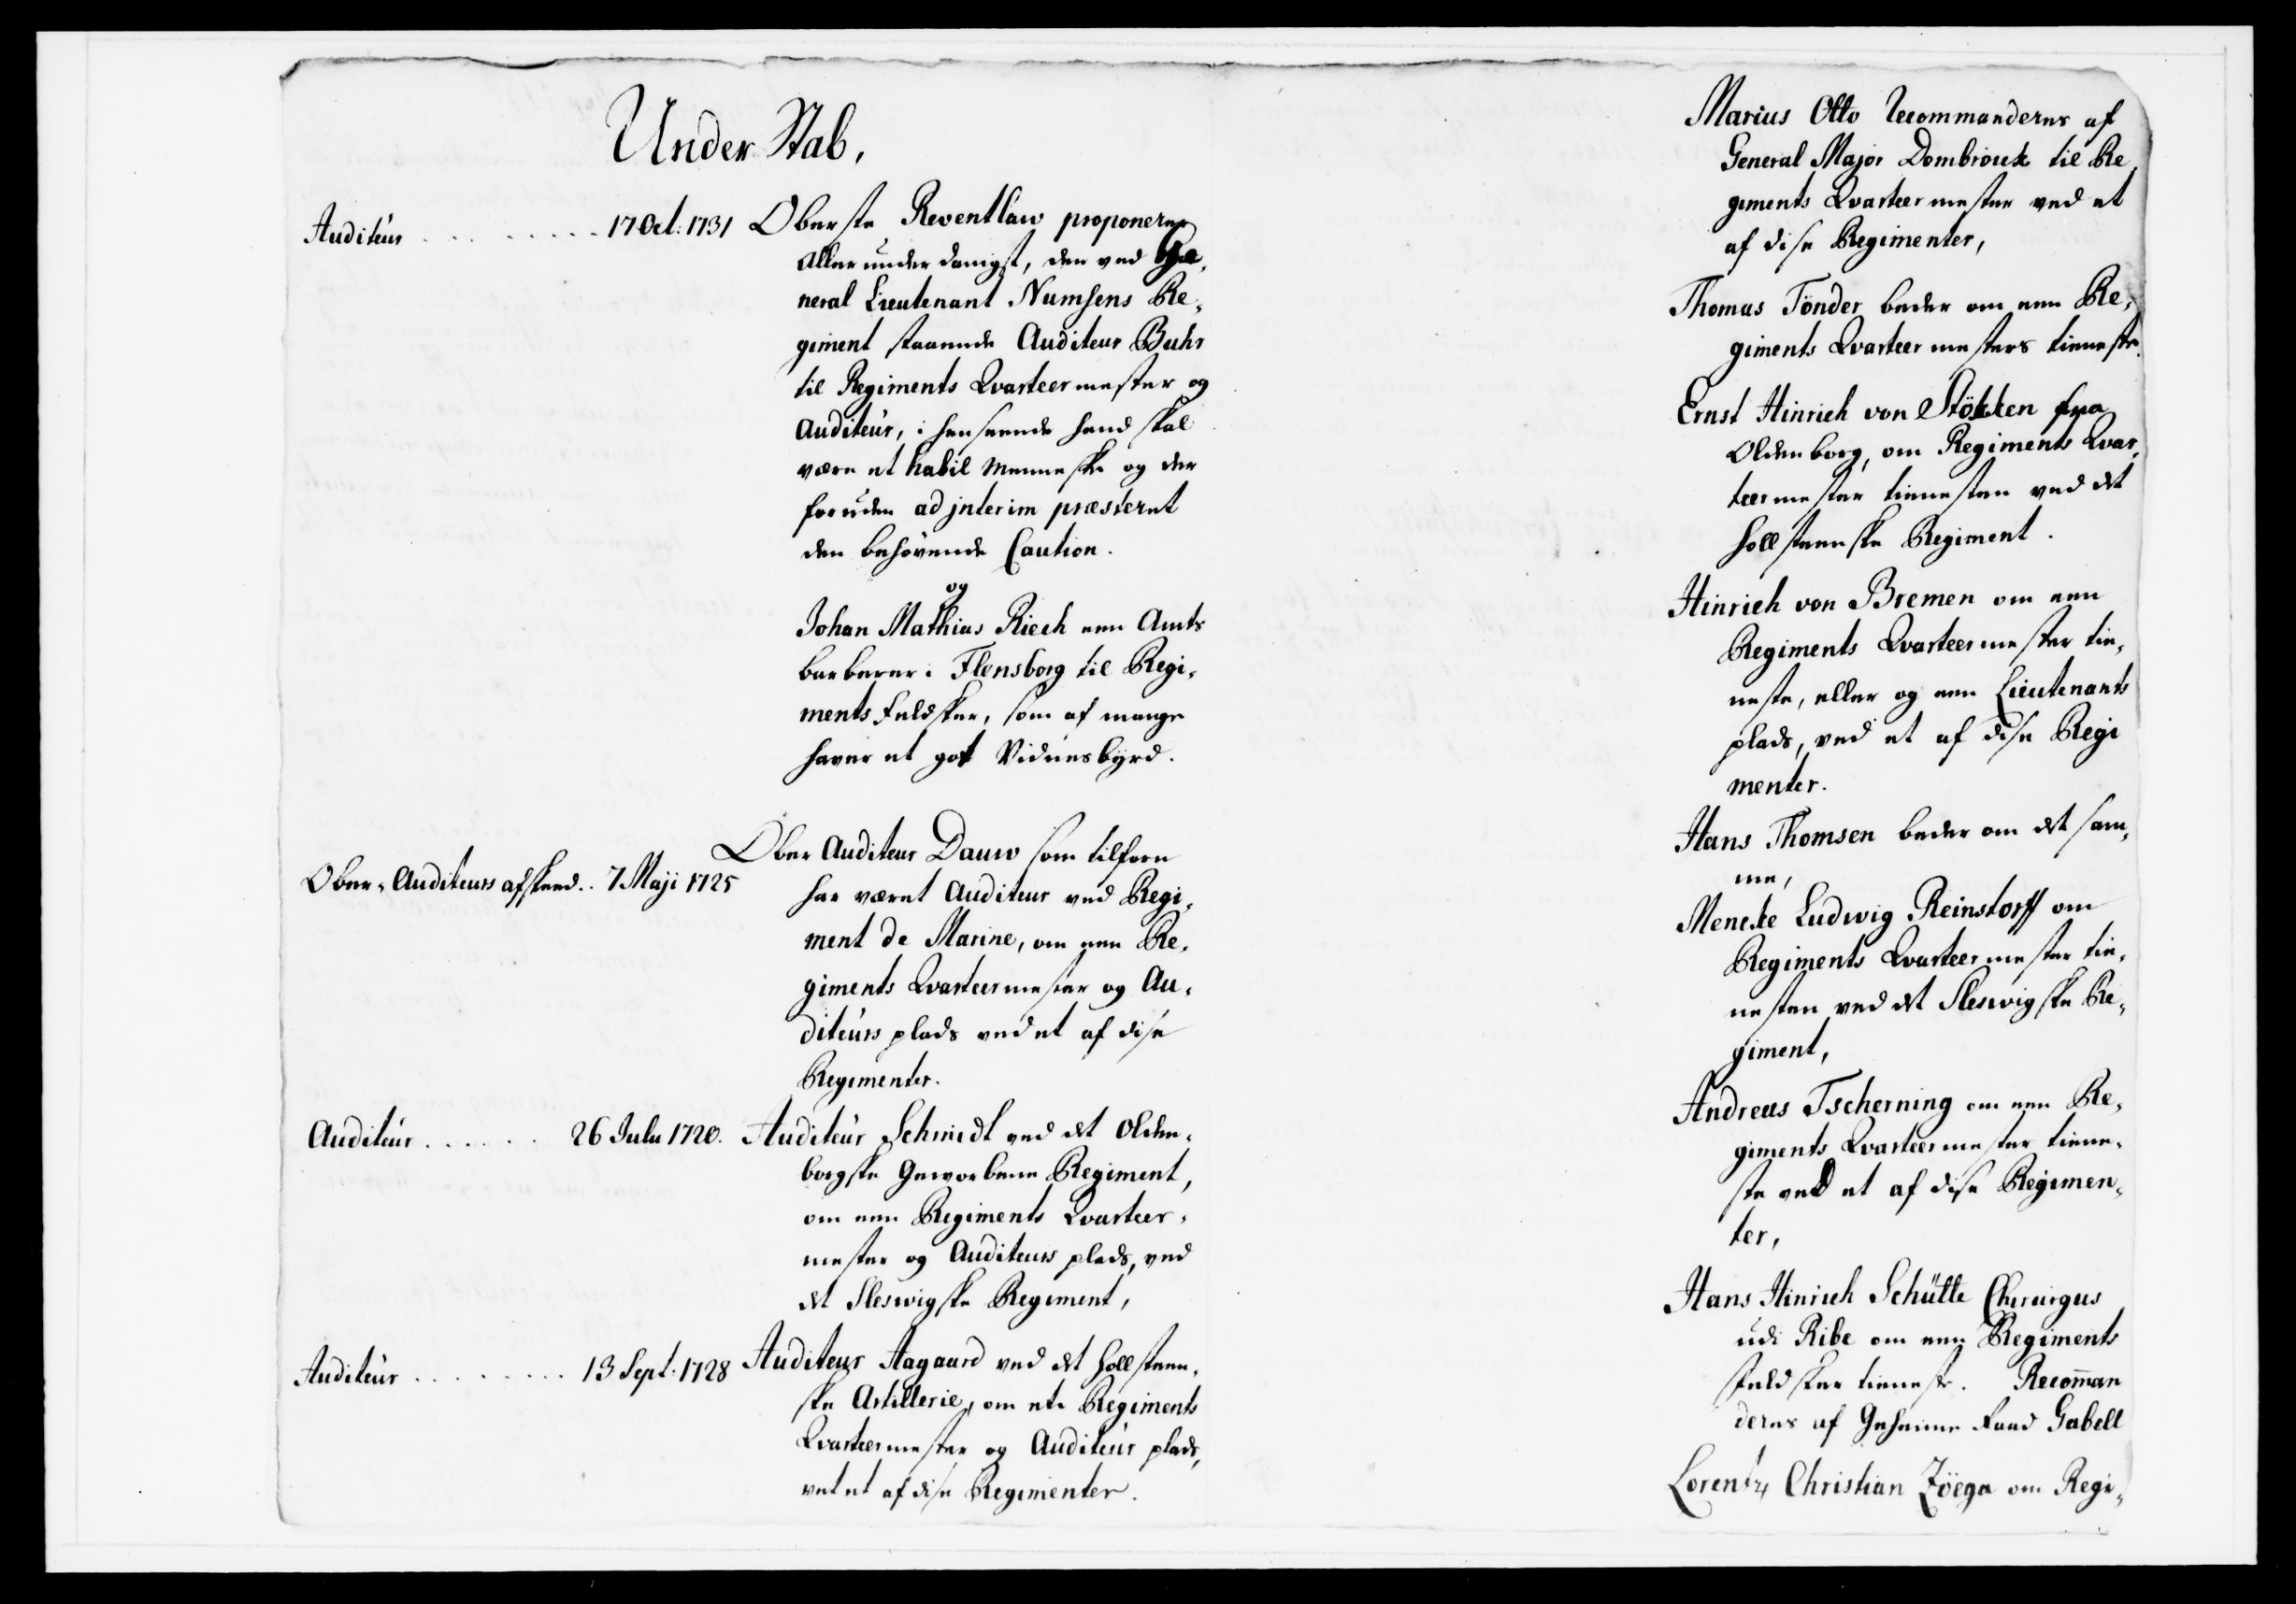 Under Stab,
Auditeur . . . . . . . . . 17 Oct: 1731 Oberste Reventlaw proponerer
Allerunderdanigst, den ved Ge,
neral Lieutenant Numsens Re,
giment staaende Auditeur Buhr
til Regiments Qvarteermester og
Auditeur, i henseende hand skal
være et habil Menneske og der
foruden ad jnterim præsteret
den behøvende Caution.
og
Johan Mathias Riech een Amts
barberer i Flensborg til Regi,
ments feldsker, som af mange
haver et got Vidnesbyrd.
Ober, Auditeurs afskeed . . 7 Maji 1725
Ober Auditeur Dauw som tilforn
har været Auditeur ved Regi,
ment de Marine, om een Re,
giments Qvarteermester og Au,
diteurs plads ved et af dise
Regimenter.
Auditeur . . . . . . 26 Julu 1720. Auditeur Schmidt ved det Olden,
borgske Geworbene Regiment,
om een Regiments Qvarteer,
mester og Auditeurs plads, ved
det Sleswigske Regiment,
Auditeur . . . . . . . . . 13 Sept. 1728 Auditeur Aagaard ved det Hollsteen,
ske Artillerie, om et Regiments
Qvarteermester og Auditeur plads,
vet et af dise Regimenter.
Marius Otto Recommanderes af
General Major Dombrouck til Re
giments Qvarteermester ved et
af dise Regimenter,
Thomas Tönder beder om een Re,
giments Qvarteermesters tieneste.
Ernst Hinrich von Stökken fra
Oldenborg, om Regiments Qvar,
teermester tienesten ved det
Hollsteenske Regiment.
Hinrich von Bremen om een
Regiments Qvarteermester tie,
neste, eller og een Lieutenants
plads, ved et af dise Regi
menter.
Hans Thomsen beder om det sam,
me,
Mencke Ludwig Reinstorff om
Regiments Qvarteermester tie,
nesten ved det Sleswigske Re,
giment,
Andreas Tscherning om een Re,
giments Qvarteermester tiene,
ste ved et af dise Regimen,
ter,
Hans Hinrich Schütte Chirurgus
udi Ribe om een Regiments
feldsker tieneste. Recom̄an
deres af Geheime Raad Gabell
Lorentz Christian Zöega om Regi,